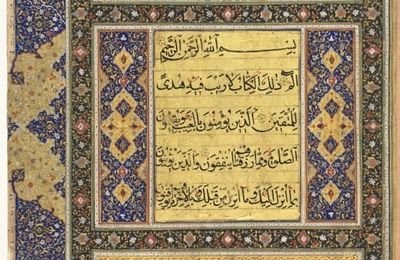 بِسْمِ اللَّهِ الرَّحْمَنِ الرَّحِيمِ
الم ذَلِكَ الْكِتَابُ لَا رَيْبَ فِيهِ هُدًى
لِلْمُتَّقِينَ الَّذِينَ يُؤْمِنُونَ بِالْغَيْبِ وَيُقِيمُونَ
الصَّلَوةَ وَمِمَّا رَزَقْنَاهُمْ يُنْفِقُونَ وَالَّذِينَ يُؤْمِنُونَ
بِمَا أُنْزِلَ إِلَيْكَ وَمَا أُنْزِلَ مِنْ قَبْلِكَ وَبِالْآخِرَةِ هُمْ يُوقِنُونَ